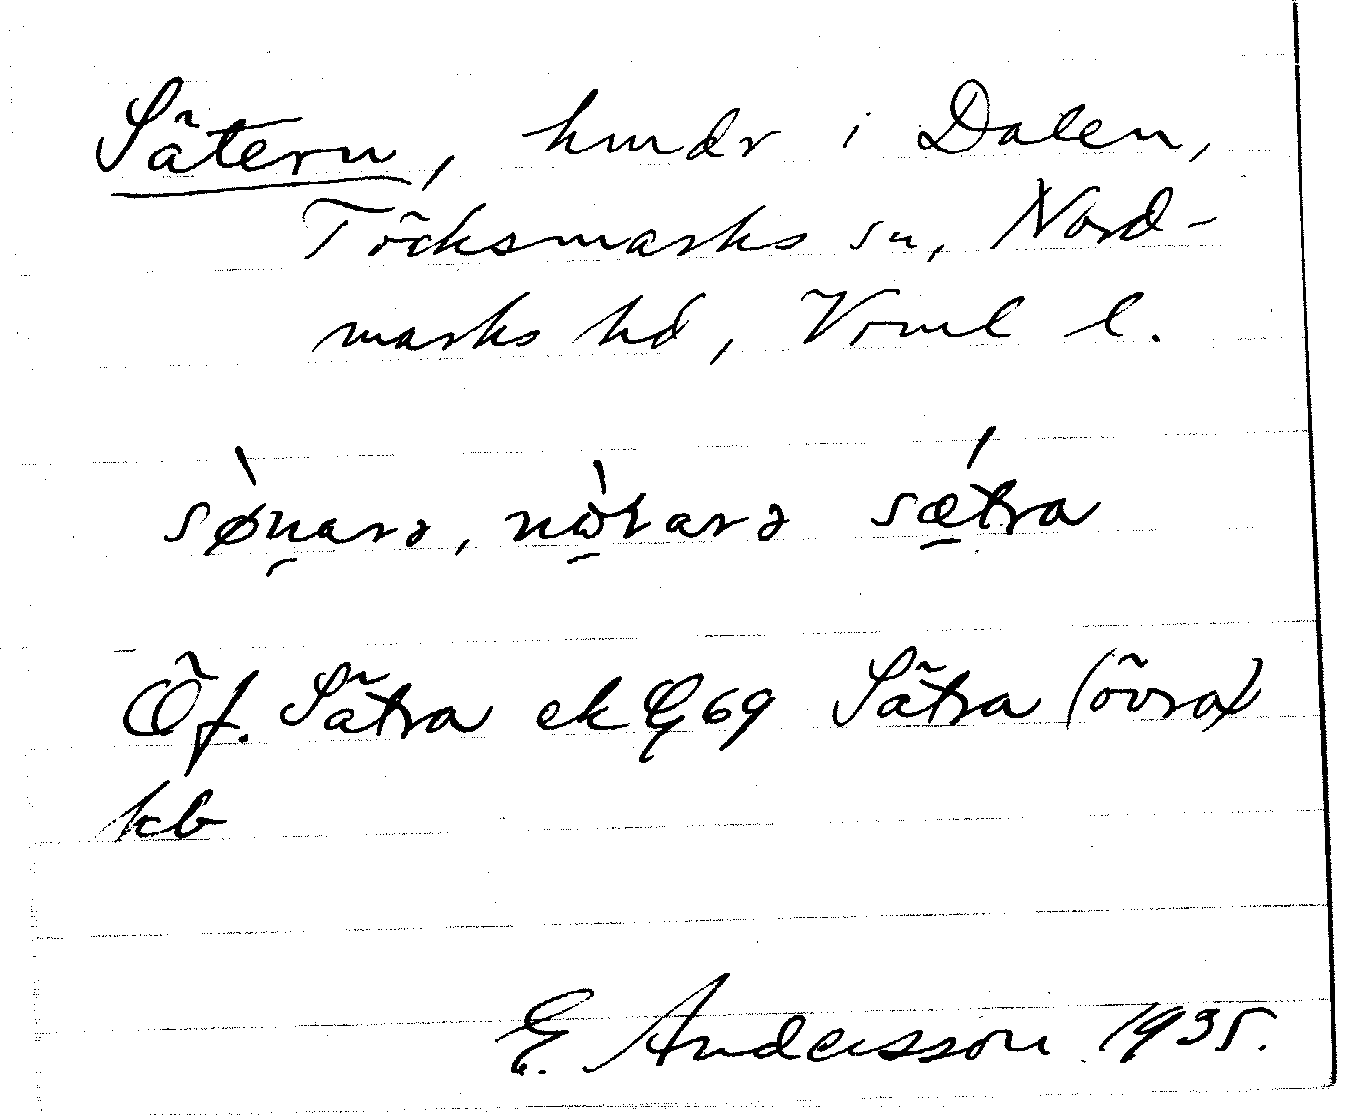 Sätern, hmdr i Dalen,
Töcksmarks sn, Nord-
marks hd, Vrml l.
sø̀n̪arə, nø̀ɽarə sǽtra
Öf. Sätra ek G69 Sätra (övra)
kb
E. Andersson 1935.